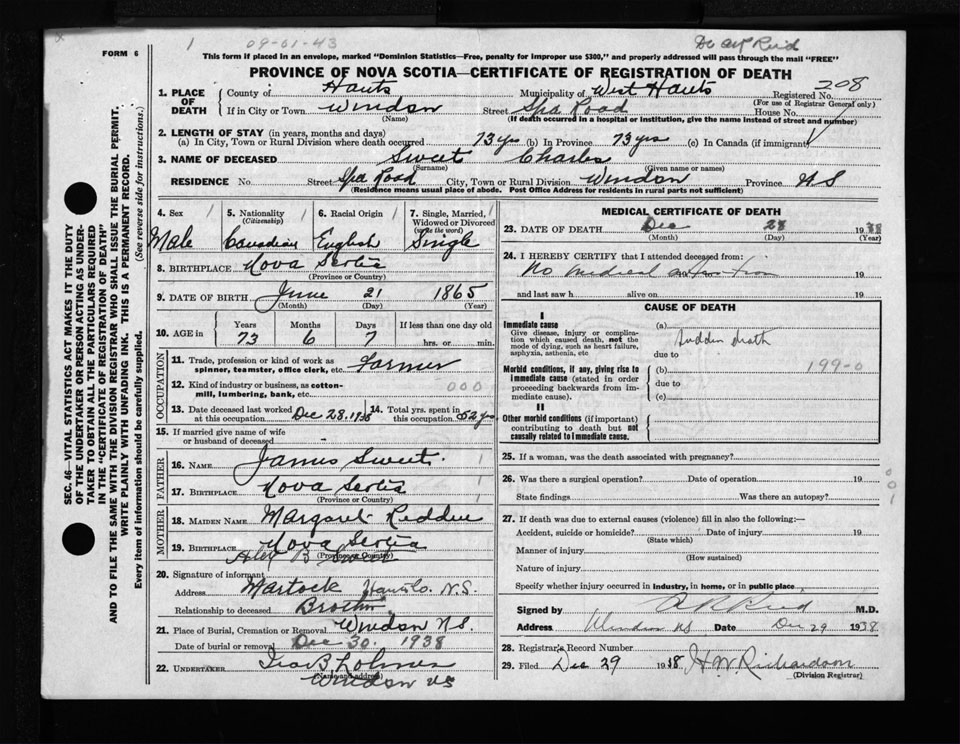 1 09-01-43
Dr A R Reid
FORM 6
This form if placed in an envelope, marked "Dominion Statistics—Free, penalty for improper use $300," and properly addressed will pass through the mail "FREE"
PROVINCE OF NOVA SCOTIA—CERTIFICATE OF REGISTRATION OF DEATH
208
1. PLACE OF DEATH County of Hants Municipality of West Hants Registered No.
(For use of Registrar General only)
If in City or Town Windsor Street Spa Road House No.
(Name) (If death occurred in a hospital or institution, give the name instead of street and number)
2. LENGTH OF STAY (in years, months and days)
(a) In City, Town or Rural Division where death occurred 73 yrs (b) In Province 73 yrs (c) In Canada (if immigrant)
3. NAME OF DECEASED Sweet Charles
(Surname) (Given name or names)
RESIDENCE No. Street Spa Road City, Town or Rural Division Windsor Province N S
(Residence means usual place of abode. Post Office Address for residents in rural parts not sufficient)
4. Sex 5. Nationality (Citizenship) 6. Racial Origin 7. Single, Married, Widowed or Divorced (write the word)
Male Canadian English Single
8. BIRTHPLACE Nova Scotia
(Province or Country)
9. DATE OF BIRTH June 21 1865
(Month) (Day) (Year)
10. AGE in Years Months Days If less than one day old
73 6 7 hrs. or min.
OCCUPATION
11. Trade, profession or kind of work as spinner, teamster, office clerk, etc. Farmer
12. Kind of industry or business, as cotton-mill, lumbering, bank, etc. 000
13. Date deceased last worked at this occupation Dec 28, 1938 14. Total yrs. spent in this occupation 52 yrs
15. If married give name of wife or husband of deceased
FATHER
16. NAME James Sweet
17. BIRTHPLACE Nova Scotia
(Province or Country)
MOTHER
18. MAIDEN NAME Margaret Redden
19. BIRTHPLACE Nova Scotia
(Province or Country)
20. Signature of informant
Address Martock Hants Co. N.S.
Relationship to deceased Brother
21. Place of Burial, Cremation or Removal Windsor N.S.
Date of burial or removal Dec 30, 1938
22. UNDERTAKER
(Name and address)
Windsor NS
MEDICAL CERTIFICATE OF DEATH
23. DATE OF DEATH Dec 28 1938
(Month) (Day) (Year)
24. I HEREBY CERTIFY that I attended deceased from:
No medical attention 19
and last saw h alive on 19
CAUSE OF DEATH
I
Immediate cause (a) Sudden death
Give disease, injury or complication which caused death, not the mode of dying, such as heart failure, asphyxia, asthenia, etc due to
Morbid conditions, if any, giving rise to immediate cause (stated in order proceeding backwards from immediate cause). (b) 199-0
due to
(c)
II
Other morbid conditions (if important) contributing to death but not causally related to immediate cause.
25. If a woman, was the death associated with pregnancy?
26. Was there a surgical operation? Date of operation 19
State findings Was there an autopsy?
27. If death was due to external causes (violence) fill in also the following:—
Accident, suicide or homicide? Date of injury 19
(State which)
Manner of injury
(How sustained)
Nature of injury
Specify whether injury occurred in industry, in home, or in public place
Signed by A R Reid M.D.
Address Windsor NS Date Dec 29 1938
28. Registrar's Record Number
29. Filed Dec 29 1938 H.W. Richardson
(Division Registrar)
SEC. 46—VITAL STATISTICS ACT MAKES IT THE DUTY
OF THE UNDERTAKER OR PERSON ACTING AS UNDER-
TAKER TO OBTAIN ALL THE PARTICULARS REQUIRED
IN THE "CERTIFICATE OF REGISTRATION OF DEATH"
AND TO FILE THE SAME WITH THE DIVISION REGISTRAR WHO SHALL ISSUE THE BURIAL PERMIT.
WRITE PLAINLY WITH UNFADING INK. THIS IS A PERMANENT RECORD.
Every item of information should be carefully supplied. (See reverse side for instructions.)